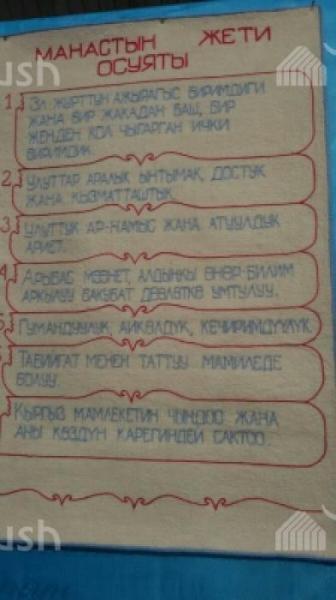 МАНАСТЫН ЖЕТИ
ОСУЯТЫ
1, ЭЛ ЖУРТТУН АЖЫРАГЫС БИРИМДИГИ
ЖАНА БИР ЖАКАДАН БАШ, БИР
ЖЕНДЕН КОЛ ЧЫГАРГАН ИЧКИ
БИРИМДИК.
2, УЛУТТАР АРАЛЫК ЫНТЫМАК, ДОСТУК
ЖАНА КЫЗМАТТАШТЫК.
3, УЛУТТУК АР-НАМЫС ЖАНА АТУУЛДУК
АРИЕТ.
4, АРЫБАС МЭЭНЕТ, АЛДЫНКЫ ӨНӨР-БИЛИМ
АРКЫЛУУ БАКУБАТ ДӨӨЛӨТКӨ УМТУЛУУ.
5, ГУМАНДУУЛУК, АЙКӨЛДҮК, КЕЧИРИМДҮҮЛҮК.
ТАБИЙГАТ МЕНЕН ТАТТУУ МАМИЛЕДЕ
БОЛУУ.
КЫРГЫЗ МАМЛЕКЕТИН ЧЫҢДОО ЖАНА
АНЫ КӨЗДҮН КАРЕГИНДЕЙ САКТОО.
ush
ush